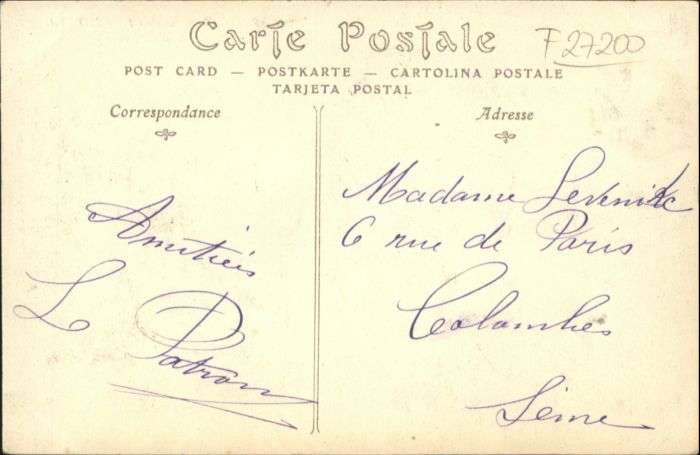 Carte Postale
F 27200
POST CARD — POSTKARTE — CARTOLINA POSTALE
TARJETA POSTAL
Correspondance
Amitiéis
L Patron
Adresse
Madame
6 rue de Paris
Colombes
Seine